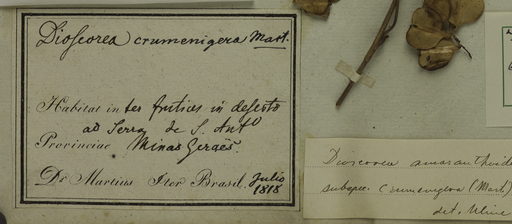 Dioscorea crumenigera Mart.
Habitat in ter frutices in deserto
ad Serra de S. Antº
Provinciae Minas Geraës
Dr Martius Iter Brasil. Julio
1818
Dioscorea amaranthoide
subspec. Crumenigera (Mart)
det. Uline